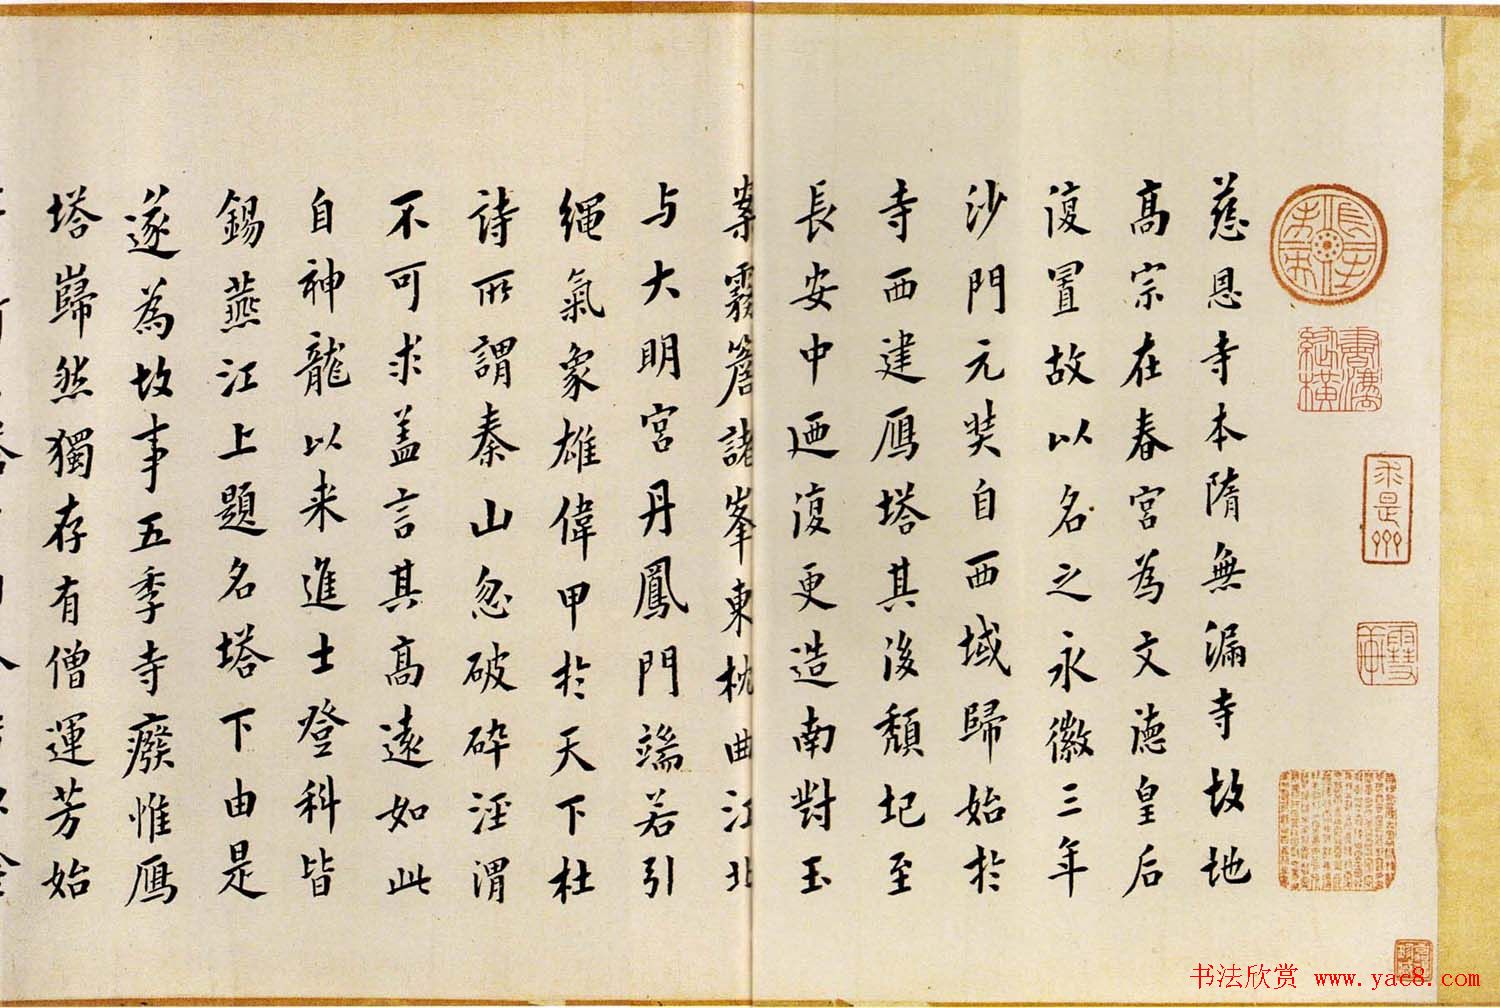 慈恩寺本隋無漏寺故地
髙宗在春宮為文德皇后
復置故以名之永徽三年
沙門元奘自西域歸始於
寺西建鴈塔其後頽圮至
長安中迺復更造南對玉
案霧簷諸峯東枕曲江北
与大明宮丹鳳門端若引
繩氣象雄偉甲於天下杜
詩所謂秦山忽破碎涇渭
不可求盖言其髙遠如此
自神龍以来進士登科皆
錫燕江上題名塔下由是
遂為故事五季寺癈惟鴈
塔巋然獨存有僧蓮芳始
书法欣赏 www.yac8.com